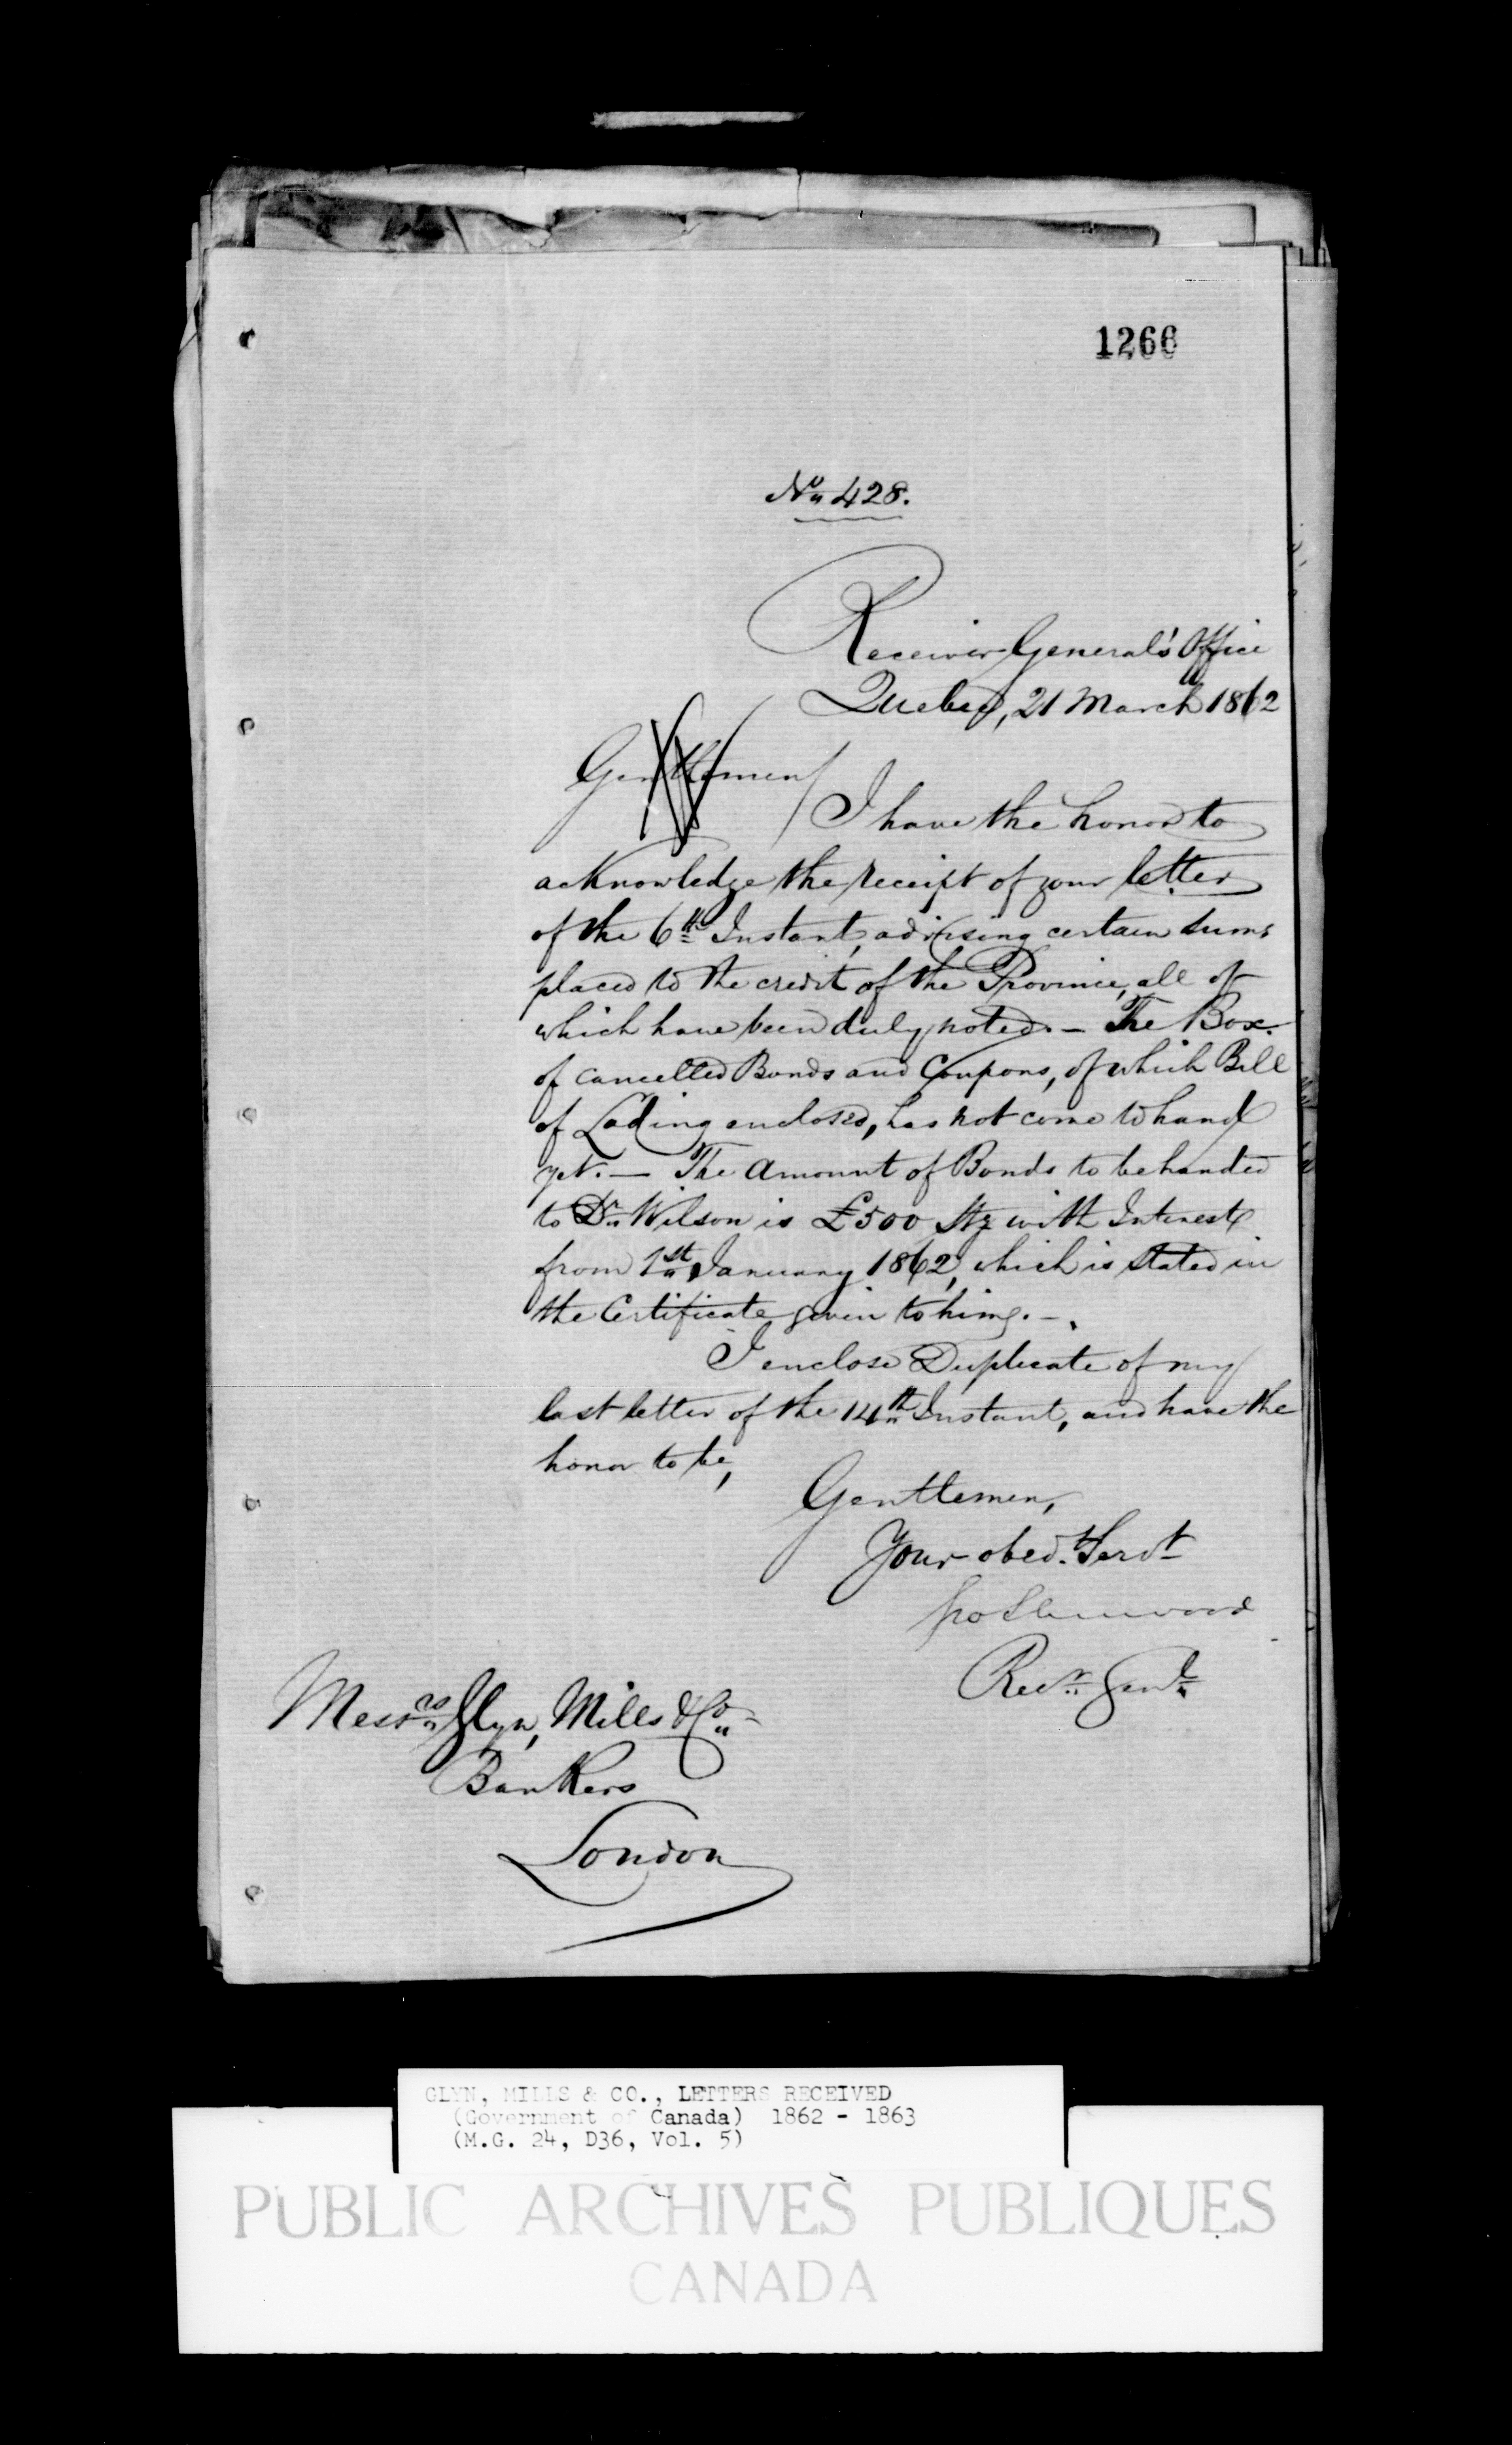 1266
No 428.
Receiver General's Office
Quebec, 21 March 1862
Gentlemen
I have the honor to
acknowledge the receipt of your letter
of the 6th Instant, advising certain sums
placed to the credit of the Province, all of
which have been duly noted. – The Box
of cancelled Bonds and Coupons, of which Bill
of Lading enclosed, has not come to hand
yet. – The Amount of Bonds to be handed
to Dr Wilson is £500 Stg with Interest
from 1st January 1862, which is stated in
the Certificate given to him. –
I enclose Duplicate of my
last letter of the 14th Instant, and have the
honor to be,
Gentlemen,
Your obedt Servt
Jos Sherwood
Recr Genl
Messrs Glyn, Mills & Co
Bankers
London
GLYN, MILLS & CO., LETTERS RECEIVED
(Government of Canada) 1862 - 1863
(M.G. 24, D36, Vol. 5)
PUBLIC ARCHIVES PUBLIQUES
CANADA